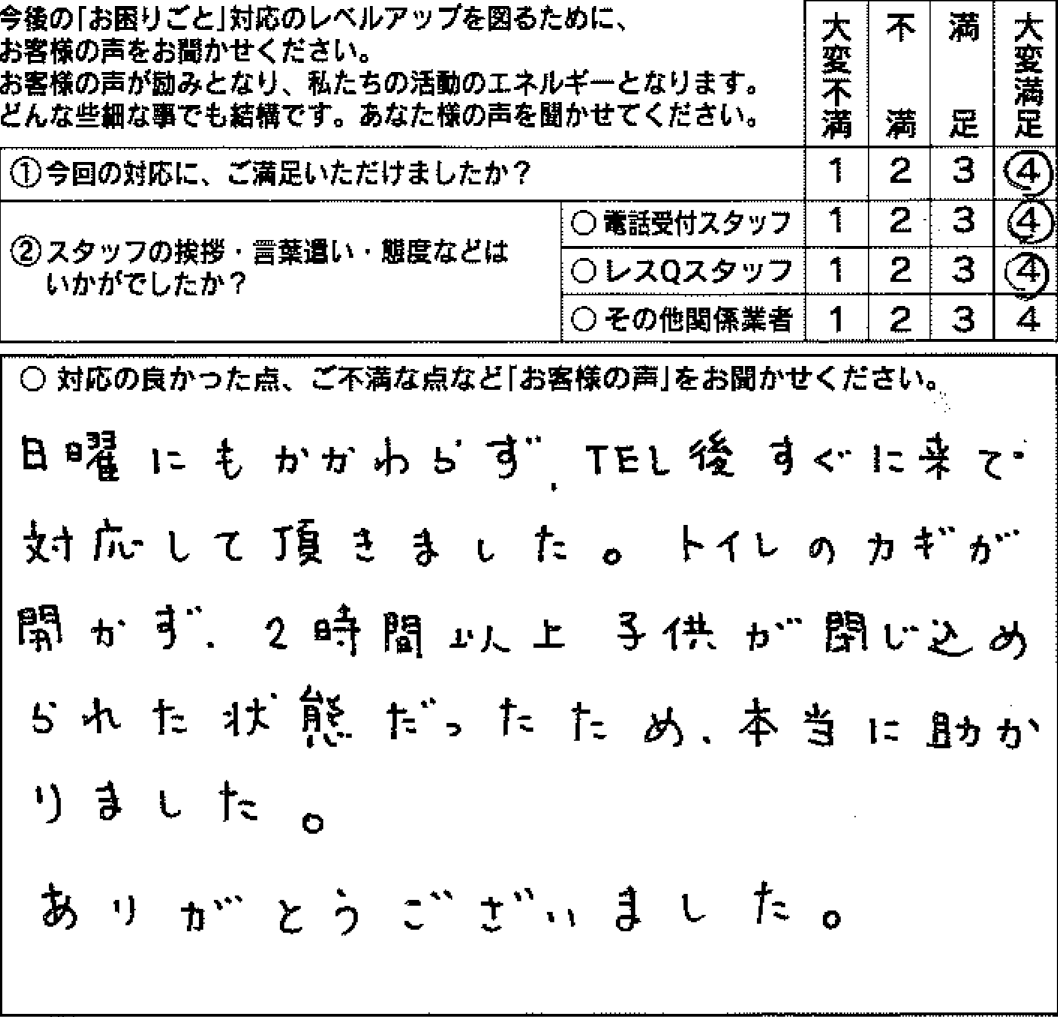 今後の「お困りごと」対応のレベルアップを図るために、
お客様の声をお聞かせください。
お客様の声が励みとなり、私たちの活動のエネルギーとなります。
どんな些細な事でも結構です。あなた様の声を聞かせてください。
大変不満 不満 満足 大変満足
①今回の対応に、ご満足いただけましたか? 1 2 3 4
②スタッフの挨拶・言葉遣い・態度などは
いかがでしたか?
○電話受付スタッフ 1 2 3 4
○レスQスタッフ 1 2 3 4
○その他関係業者 1 2 3 4
○対応の良かった点、ご不満な点など「お客様の声」をお聞かせください。
日曜にもかかわらず、TEL後すぐに来て
対応して頂きました。トイレのカギが
開かず、2時間以上子供が閉じ込め
られた状態だったため、本当に助か
りました。
ありがとうございました。